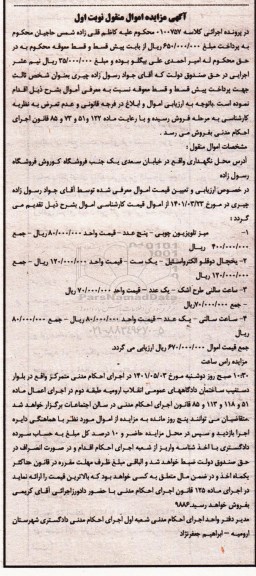 آگهی مزایده اموال منقول نوبت اول
در پرونده اجرائی کلاسه ۰۱۰۰۷۵۷ محکوم علیه کاظم قلی زاده شمس حاجیان محکوم
به پرداخت مبلغ ۶۵۰/۰۰۰/۰۰۰ ریال از بابت پیش قسط و قسط معوقه محکوم به در
حق محکوم له امیر احمدی علی بیگلو بوده و مبلغ ۳۵/۰۰۰/۰۰۰ ریال نیم عشر
اجرایی در حق صندوق دولت که آقای جواد رسول زاده چیری بعنوان شخص ثالث
جهت پرداخت پیش قسط و قسط معوقه نسبت به معرفی اموال بشرح ذیل اقدام
نموده است باتوجه به ارزیابی اموال و ابلاغ در فرجه قانونی و عدم تعرض به نظریه
کارشناسی به مرحله فروش رسیده و با رعایت ماده ۱۲۲ و ۵۱ و ۷۳ و ۸۵ قانون اجرای
احکام مدنی بفروش می رسد .
مشخصات اموال منقول :
آدرس محل نگهداری واقع در خیابان سعدی یک جنب فروشگاه کوروش فروشگاه
رسول زاده
در خصوص ارزیابی و تعیین قیمت اموال معرفی شده توسط آقای جواد رسول زاده
چیری در مورخ ۱۴۰۱/۰۳/۲۳ از اموال قیمت کارشناسی اموال بشرح ذیل تقدیم می
گردد :
۱- میز تلویزیون چوبی - پنج عدد - قیمت واحد ۸۰/۰۰۰/۰۰۰ ریال - جمع
۴۰۰/۰۰۰/۰۰۰ ریال
۲- یخچال دوقلو الکترواستیل - یک ست - قیمت واحد ۱۲۰/۰۰۰/۰۰۰ ریال - جمع
۱۲۰/۰۰۰/۰۰۰ ریال
۳- ساعت سالنی طرح اشک - یک عدد - قیمت واحد ۷۰/۰۰۰/۰۰۰ ریال
- جمع ۷۰/۰۰۰/۰۰۰ ریال
۴- ساعت سالنی - یک عدد - قیمت واحد ۸۰/۰۰۰/۰۰۰ ریال - جمع ۸۰/۰۰۰/۰۰۰
ریال
جمع قیمت اموال ۶۷۰/۰۰۰/۰۰۰ ریال ارزیابی می گردد.
مزایده راس ساعت
۱۰:۳۰ صبح روز دوشنبه مورخ ۱۴۰۱/۰۵/۰۳ در اجرای احکام مدنی متمرکز واقع در بلوار
دستغیب ساختمان دادگاههای عمومی انقلاب ارومیه طبقه دوم در اجرای اعمال ماده
۵۱ و ۱۱۸ و ۱۱۳ و ۸۵ قانون اجرای احکام مدنی در سالن اجتماعات برگزار خواهد شد
متقاضیان می توانند پنج روز مانده به مزایده از اموال مورد نظر با هماهنگی دایره
اجرا بازدید و سپس در محل مزایده حاضر و ۱۰ درصد کل مبلغ به حساب سپرده
دادگستری با اخذ شناسه واریز از شعبه اجرای احکام اقدام و در صورت انصراف در
حق صندوق دولت ضبط خواهد شد و الباقی مبلغ ظرف مهلت مقرره در قانون حداکثر
یکماه اخذ و در ضمن مال متعلق به کسی خواهد بود که بالاترین قیمت را ارائه نماید
در اجرای ماده ۱۲۵ قانون اجرای احکام مدنی با حضور دادورزاجرائی آقای کریمی
بفروش خواهد رسید. ۹۸۸۶
مدیر دفتر واحد اجرای احکام مدنی شعبه اول اجرای احکام مدنی دادگستری شهرستان
ارومیه - ابراهیم جعفرنژاد